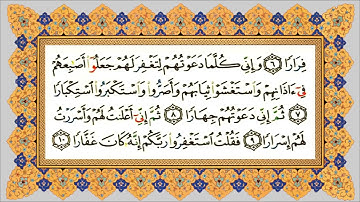 فِرَارًا ٦ وَإِنِّي كُلَّمَا دَعَوْتُهُمْ لِتَغْفِرَ لَهُمْ جَعَلُوا أَصَٰبِعَهُمْ
فِي ءَاذَانِهِمْ وَاسْتَغْشَوْا ثِيَابَهُمْ وَأَصَرُّوا وَاسْتَكْبَرُوا اسْتِكْبَارًا
٧ ثُمَّ إِنِّي دَعَوْتُهُمْ جِهَارًا ٨ ثُمَّ إِنِّي أَعْلَنْتُ لَهُمْ وَأَسْرَرْتُ
لَهُمْ إِسْرَارًا ٩ فَقُلْتُ اسْتَغْفِرُوا رَبَّكُمْ إِنَّهُ كَانَ غَفَّارًا ١٠